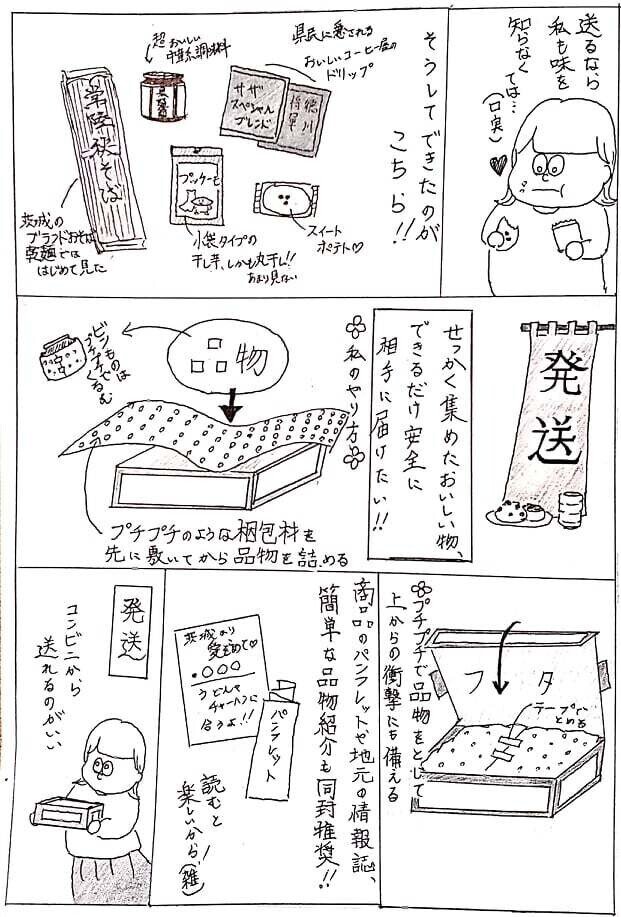 送るなら
私も味を
知らなくては…
(口実)
そうしてできたのが
こちら!!
県民に愛される
おいしいコーヒー屋の
ドリップ
徳川
将軍
サザ
スペシャル
ブレンド
超おいしい
中華系調味料
常陸秋そば
茨城の
ブランドおそば
乾麺では
はじめて見た
小袋タイプの
干し芋、しかも丸干し!!
あまり見ない
スイート
ポテト♡
発送
せっかく集めたおいしい物、
できるだけ安全に
相手に届けたい!!
私のやり方
品物
ビンものは
プチプチでくるむ
プチプチのような梱包材を
先に敷いてから品物を詰める
プチプチで品物をとじて
上からの衝撃にも備える
フタ
テープで
とめる
商品のパンフレットや地元の情報誌、
簡単な品物紹介も同封推奨!!
茨城より
愛をこめて♡
・○○○
うどんや
チャーハンに
合うよ!!
パンフレット
読むと
楽しいから!
(雑)
発送
コンビニから
送れるのがいい